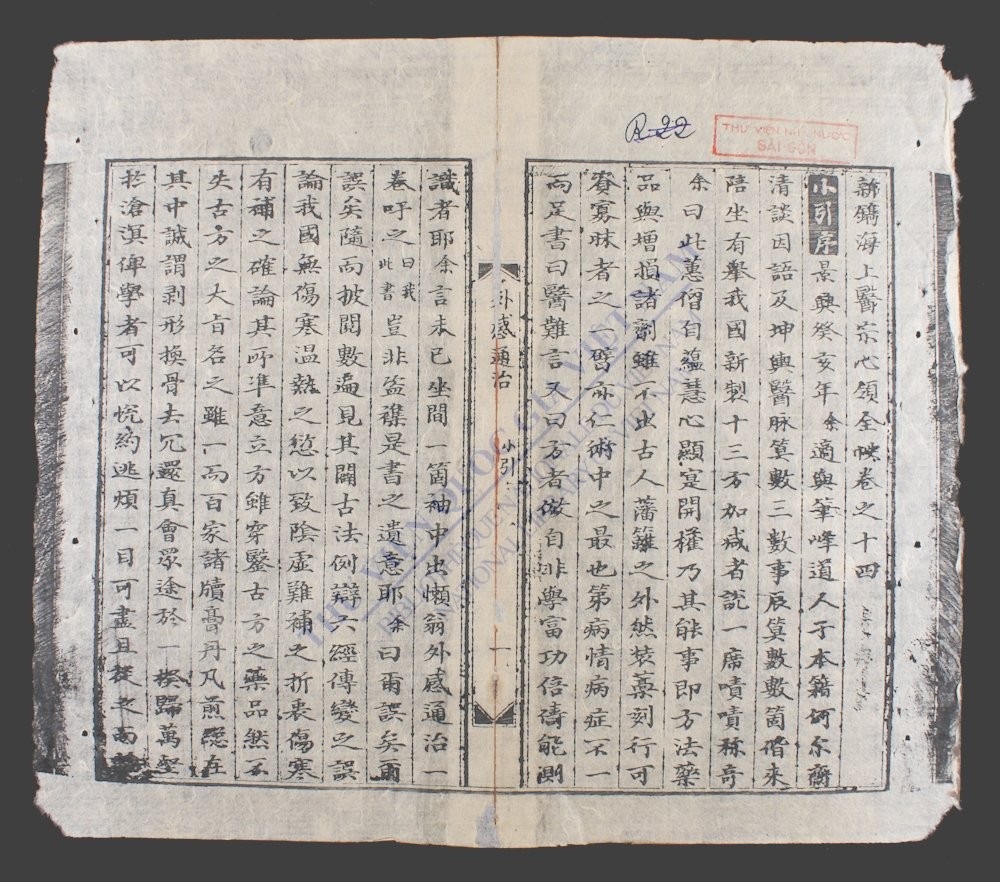 R-22
THƯ VIỆN NHÀ NƯỚC
SÀI-GÒN
新鐫海上醫宗心領全帙卷之十四
小引序 景興癸亥年余適與筆峰道人于本籍何尔齋
清談因語及坤輿醫脉算數三數事辰算數數箇偕來
陪坐有舉我國新製十三方加减者説一席嘖嘖称奇
余曰此蕙僧自蘊慧心顯寔開權乃其能事即方法藥
品與增損諸劑雖不出古人藩籬之外然裝藁刻行可
資寡昧者之一啓亦仁術中之最也第病情病症不一
而足書曰醫難言又曰方者倣自非學富功倍禱能測
外感通治 小引 一
識者耶余言未已坐間一箇袖中出懶翁外感通治一
卷吁之曰我此書豈非盗襍是書之遺意耶余曰爾誤矣爾
誤矣隨而披閲數遍見其闢古法例辯六經傳變之誤
論我國無傷寒温熱之愆以致陰虛雜補之折衷傷寒
有補之確論其所準意立方雖穿鑿古方之藥品然不
失古方之大旨名之雖一而百家諸牘膏丹凡煎總在
其中誠謂剥形換骨去冗還真會眾途於一揆歸萬壑
於滄溟俾學者可以悦約逃煩一目可盡且從之而
THƯ VIỆN QUỐC GIA VIỆT NAM
BIBLIOTHÈQUE NATIONALE DU VIETNAM
NATIONAL LIBRARY OF VIETNAM